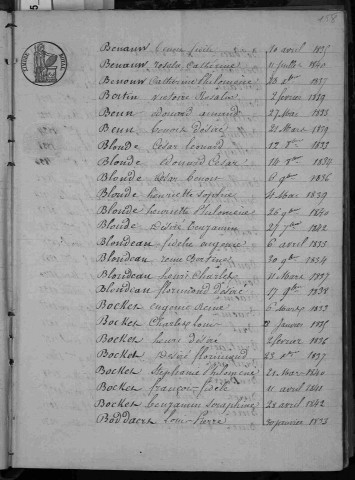 158
5
Benaux 10 avril 1835
Benaux Rosalie Catherine 11 juillet 1840
Benoun Catherine Philomène 23 1837
Bertin Victoire Rosalie 2 février 1829
Benn Edouard amand 27 Mars 1833
Benn Benoit Désiré 22 Mars 1839
Blonde César Léonard 12 8bre 1833
Blonde Edouard César 14 8bre 1834
Blonde César Benoit 6 9bre 1836
Blonde henriette Sophie 4 Mars 1839
Blonde henriette Philomène 26 9bre 1840
Blonde Désiré benjamin 27 7bre 1842
Blondeau fidèle eugénie 6 avril 1833
Blondeau 20 9bre 1834
Blondeau henri Charles 11 Mars 1837
Blondiau florimond Désiré 17 9bre 1838
Bocket eugénie Reine 6 Mars 1833
Bocket Charles louis Janvier 1835
Bocket henri désiré 2 février 1836
Bocket Désiré florimond 23 1837
Bocket Stéphanie Philomène 28 Mai 1840
Bocket françois fidèle 11 avril 1841
Bocket benjamin Séraphin 28 avril 1842
Boddaert Louis Pierre 30 janvier 1833